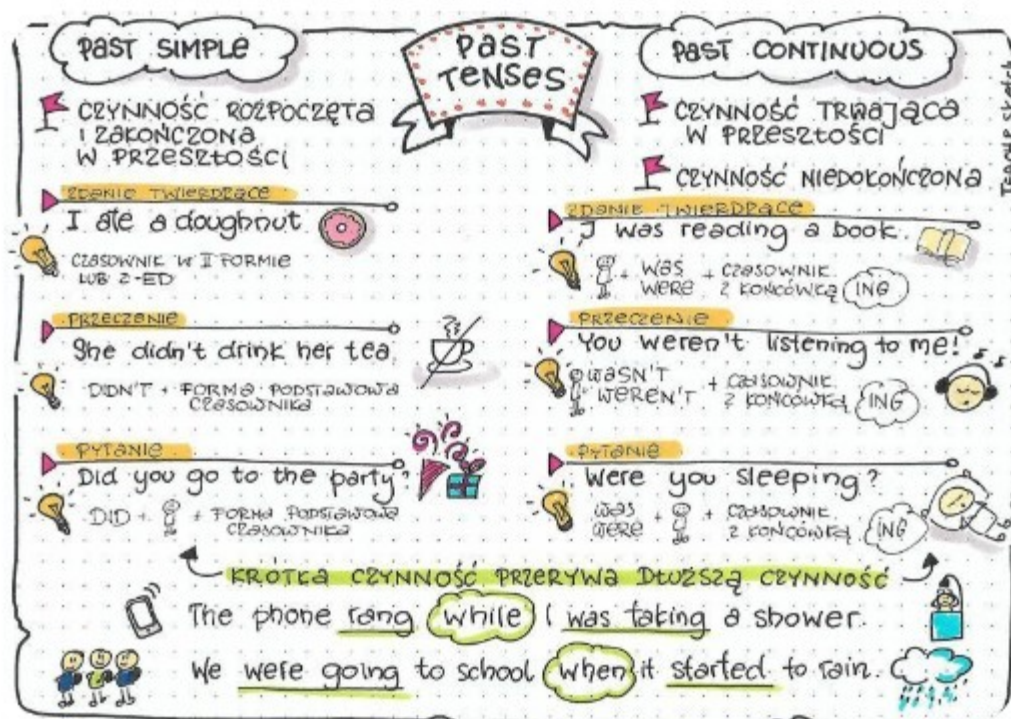 PAST TENSES
PAST SIMPLE
CZYNNOŚĆ ROZPOCZĘTA
I ZAKOŃCZONA
W PRZESZŁOŚCI
ZDANIE TWIERDZĄCE
I ate a doughnut
CZASOWNIK W II FORMIE
LUB Z -ED
PRZECZENIE
She didn't drink her tea
DIDN'T + FORMA PODSTAWOWA
CZASOWNIKA
PYTANIE
Did you go to the party?
DID + + FORMA PODSTAWOWA
CZASOWNIKA
PAST CONTINUOUS
CZYNNOŚĆ TRWAJĄCA
W PRZESZŁOŚCI
CZYNNOŚĆ NIEDOKOŃCZONA
ZDANIE TWIERDZĄCE
I was reading a book.
+ WAS + CZASOWNIK
WERE Z KOŃCÓWKĄ ING
PRZECZENIE
You weren't listening to me!
WASN'T + CZASOWNIK
WEREN'T Z KOŃCÓWKĄ ING
PYTANIE
Were you sleeping?
WAS + + CZASOWNIK
WERE Z KOŃCÓWKĄ ING
KRÓTKA CZYNNOŚĆ PRZERYWA DŁUŻSZĄ CZYNNOŚĆ
The phone rang while I was taking a shower.
We were going to school when it started to rain.